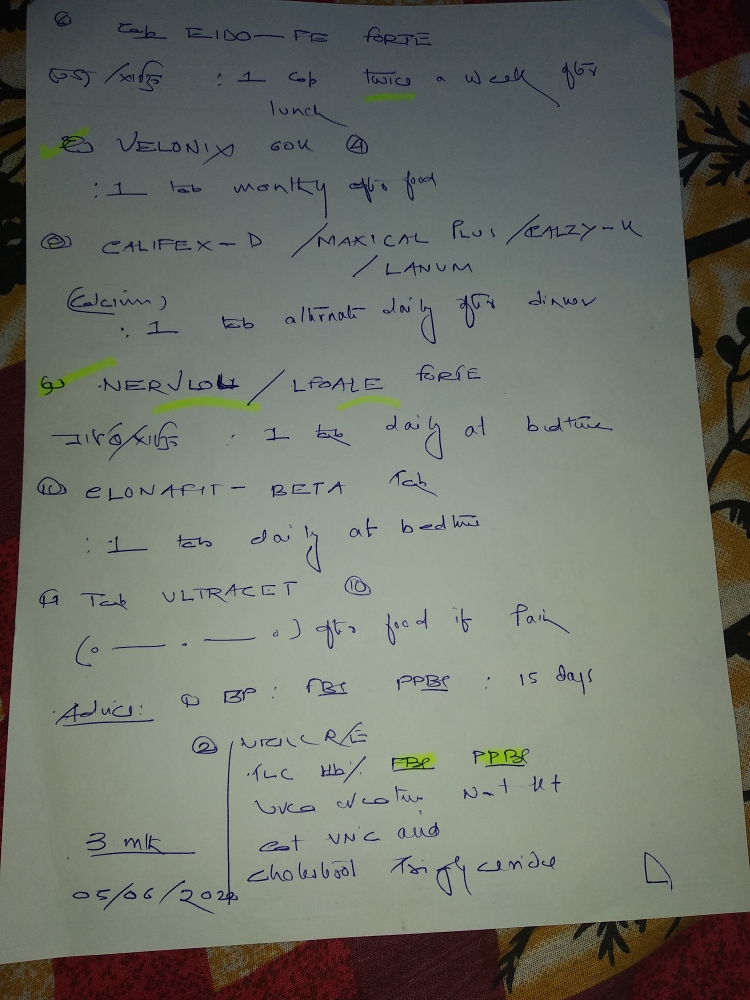 ⑥ Cap EIDO-FE FORTE
: 1 cap twice a week after
lunch
VELONIX 60K ④
: 1 tab monthly after food
⑧ CALIFEX-D / MAXICAL PLUS / CALZY-K
/ LANUM
(Calcium)
: 1 tab alternate daily after dinner
NERVLON / LFOALE FORTE
: 1 tab daily at bedtime
⑩ ELONAFIT-BETA Tab
: 1 tab daily at bedtime
11 Tab ULTRACET ⑩
( ) after food if Pain
Advice: ① BP: FBS PPBS : 15 days
② R/E
TLC Hb% FBS PPBS
Urea Na+ K+
Uric acid
cholesterol Triglyceride
3 mth
05/06/202